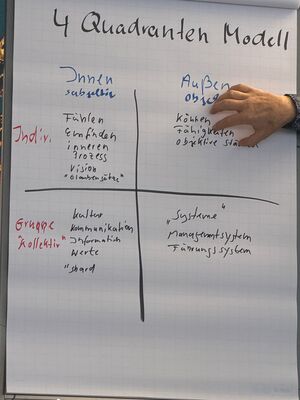 4 Quadranten Modell
Innen
subjektiv
Außen
Indiv.
Fühlen
Empfinden
inneren
Prozess
Vision
"Glaubenssätze"
Können
Fähigkeiten
objektive
Gruppe
"Kollektiv"
Kultur
Kommunikation
Information
Werte
"shard
"Systeme"
Managementsystem
Führungssystem